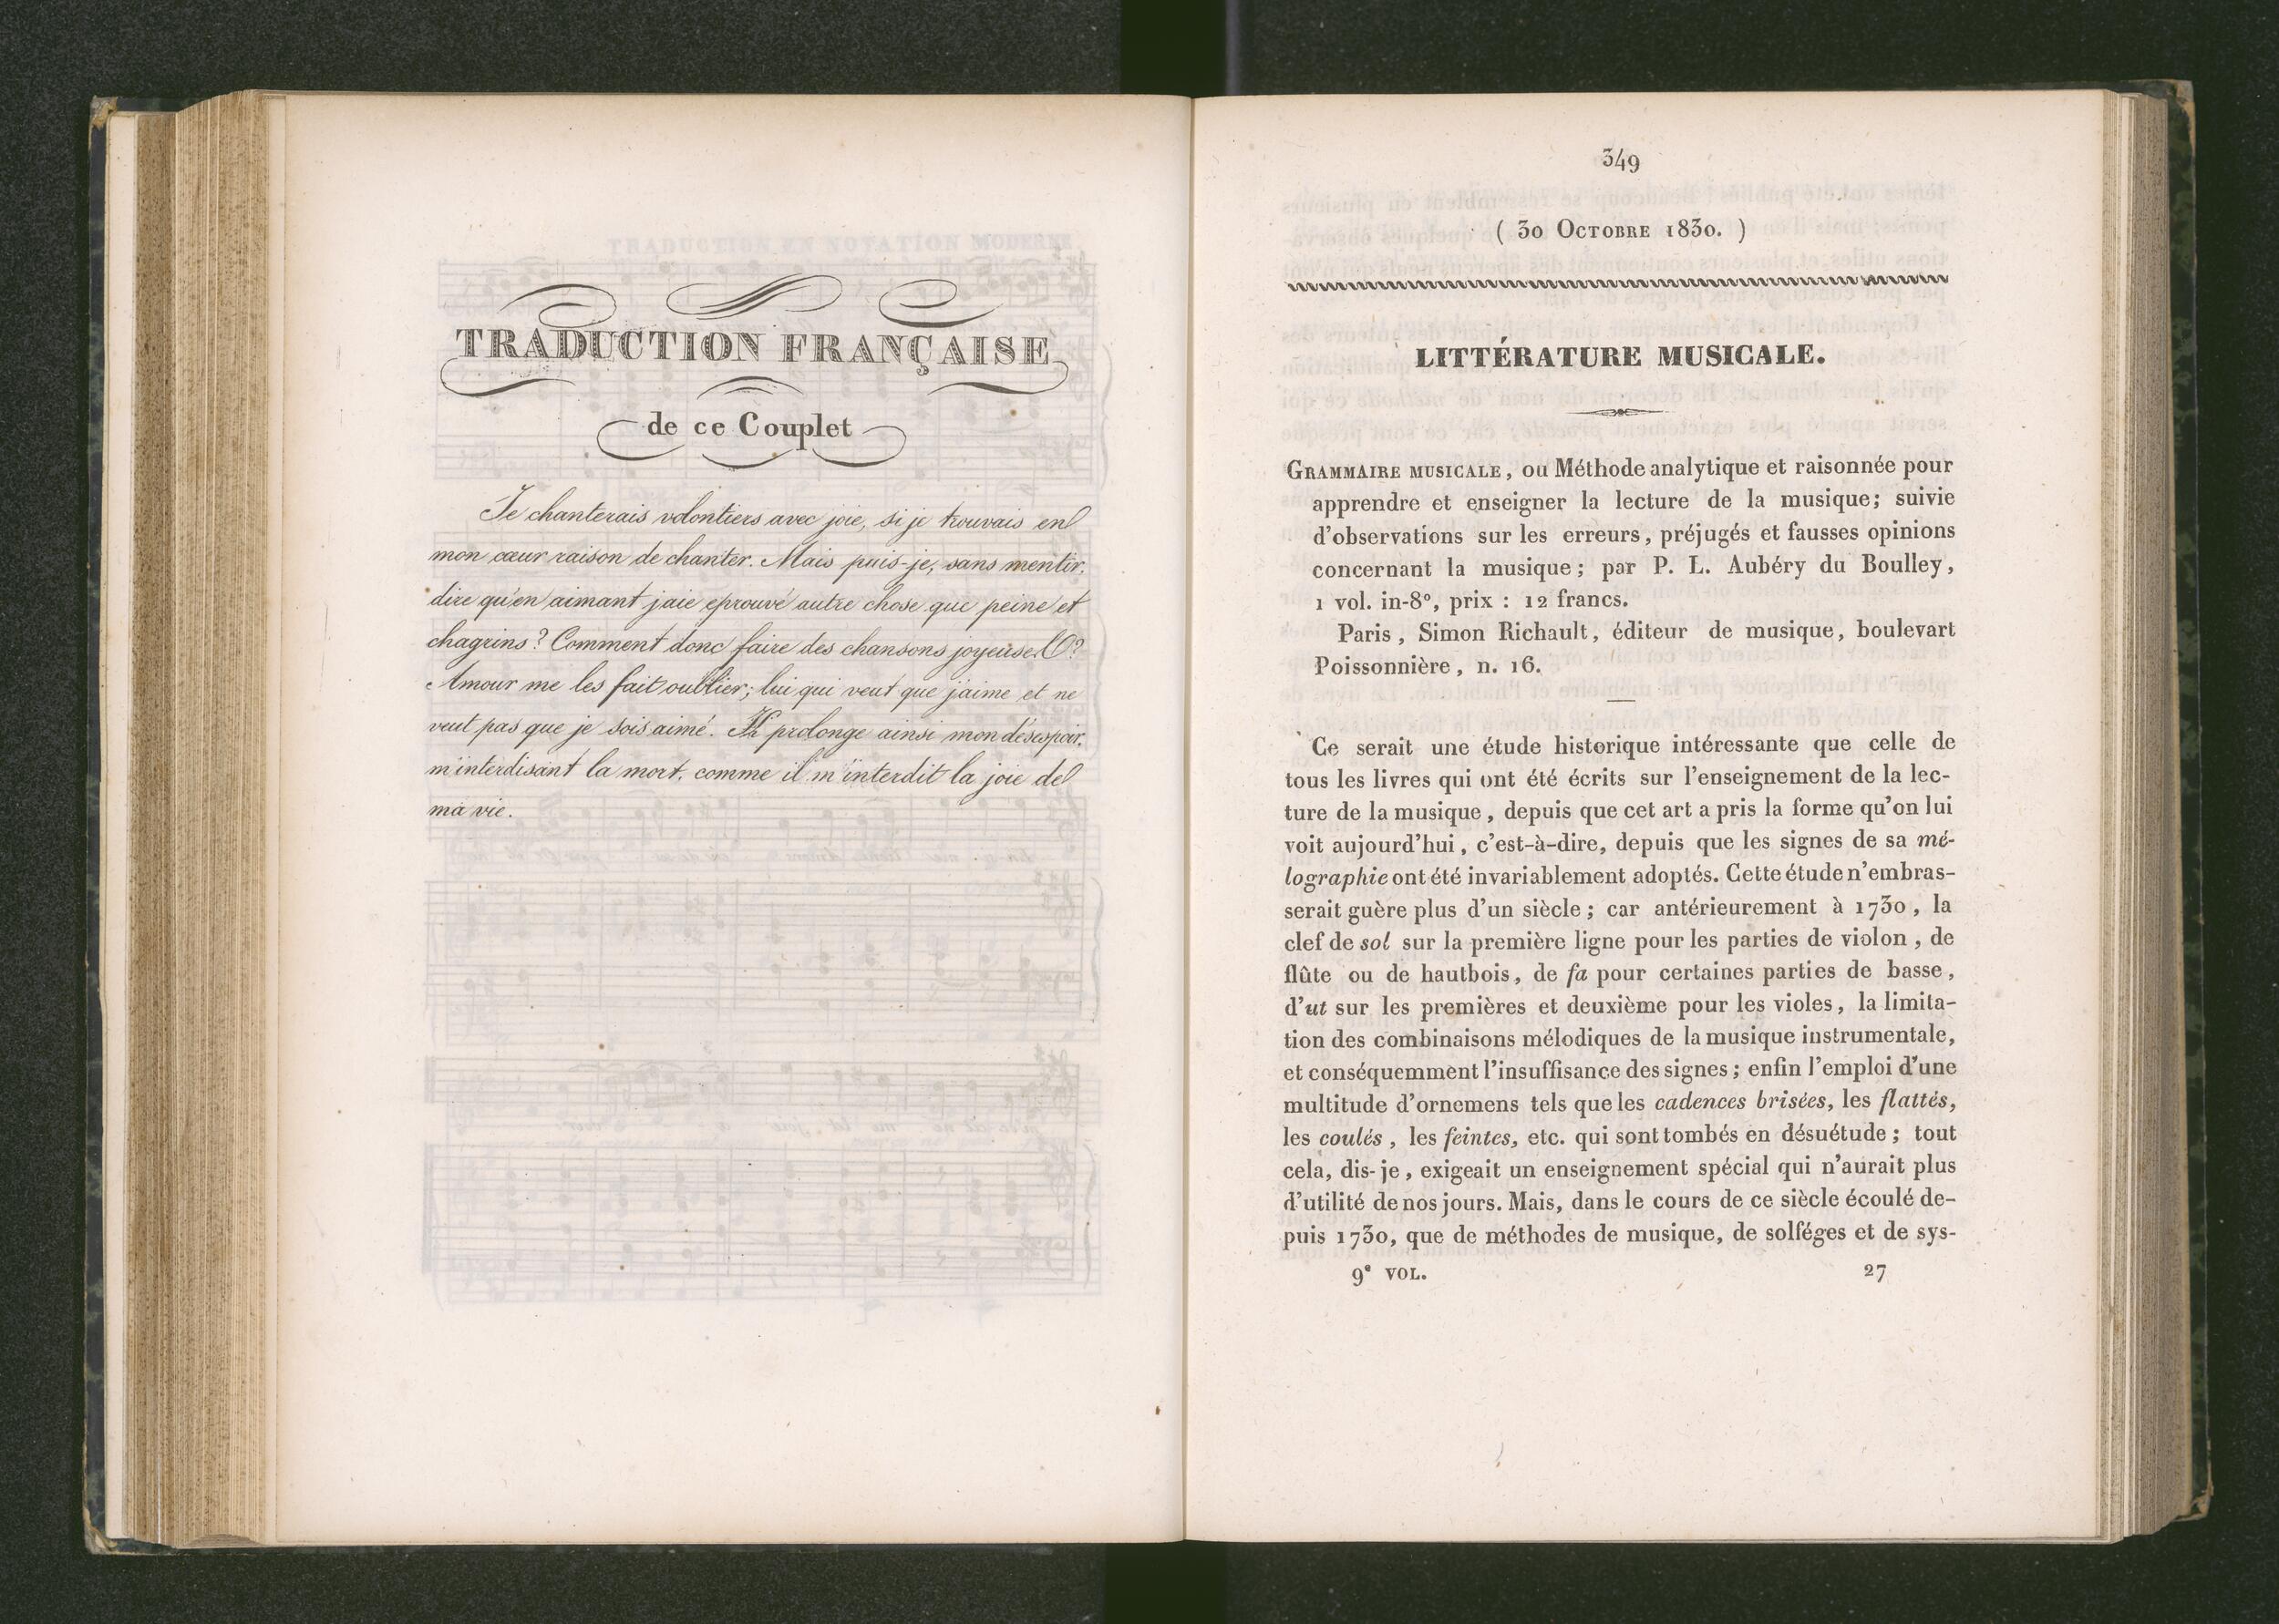 TRADUCTION FRANÇAISE
de ce Couplet
Je chanterais volontiers avec joie, si je trouvais en
mon cœur raison de chanter. Mais puis-je, sans mentir,
dire qu'en aimant jaie eprouvé autre chose que peine et
chagrins? Comment donc faire des chansons joyeuses?
Amour me les fait oublier; lui qui veut que j'aime et ne
veut pas que je sois aimé. Il prolonge ainsi mon désespoir,
m'interdisant la mort, comme il m'interdit la joie de
ma vie.
349
( 30 OCTOBRE 1830. )
LITTÉRATURE MUSICALE.
GRAMMAIRE MUSICALE, ou Méthode analytique et raisonnée pour
apprendre et enseigner la lecture de la musique; suivie
d'observations sur les erreurs, préjugés et fausses opinions
concernant la musique; par P. L. Aubéry du Boulley,
1 vol. in-8°, prix : 12 francs.
Paris, Simon Richault, éditeur de musique, boulevart
Poissonnière, n. 16.
Ce serait une étude historique intéressante que celle de
tous les livres qui ont été écrits sur l'enseignement de la lec-
ture de la musique, depuis que cet art a pris la forme qu'on lui
voit aujourd'hui, c'est-à-dire, depuis que les signes de sa mé-
lographie ont été invariablement adoptés. Cette étude n'embras-
serait guère plus d'un siècle; car antérieurement à 1730, la
clef de sol sur la première ligne pour les parties de violon, de
flûte ou de hautbois, de fa pour certaines parties de basse,
d'ut sur les premières et deuxième pour les violes, la limita-
tion des combinaisons mélodiques de la musique instrumentale,
et conséquemment l'insuffisance des signes; enfin l'emploi d'une
multitude d'ornemens tels que les cadences brisées, les flattés,
les coulés, les feintes, etc. qui sont tombés en désuétude; tout
cela, dis-je, exigeait un enseignement spécial qui n'aurait plus
d'utilité de nos jours. Mais, dans le cours de ce siècle écoulé de-
puis 1730, que de méthodes de musique, de solféges et de sys-
9e VOL. 27